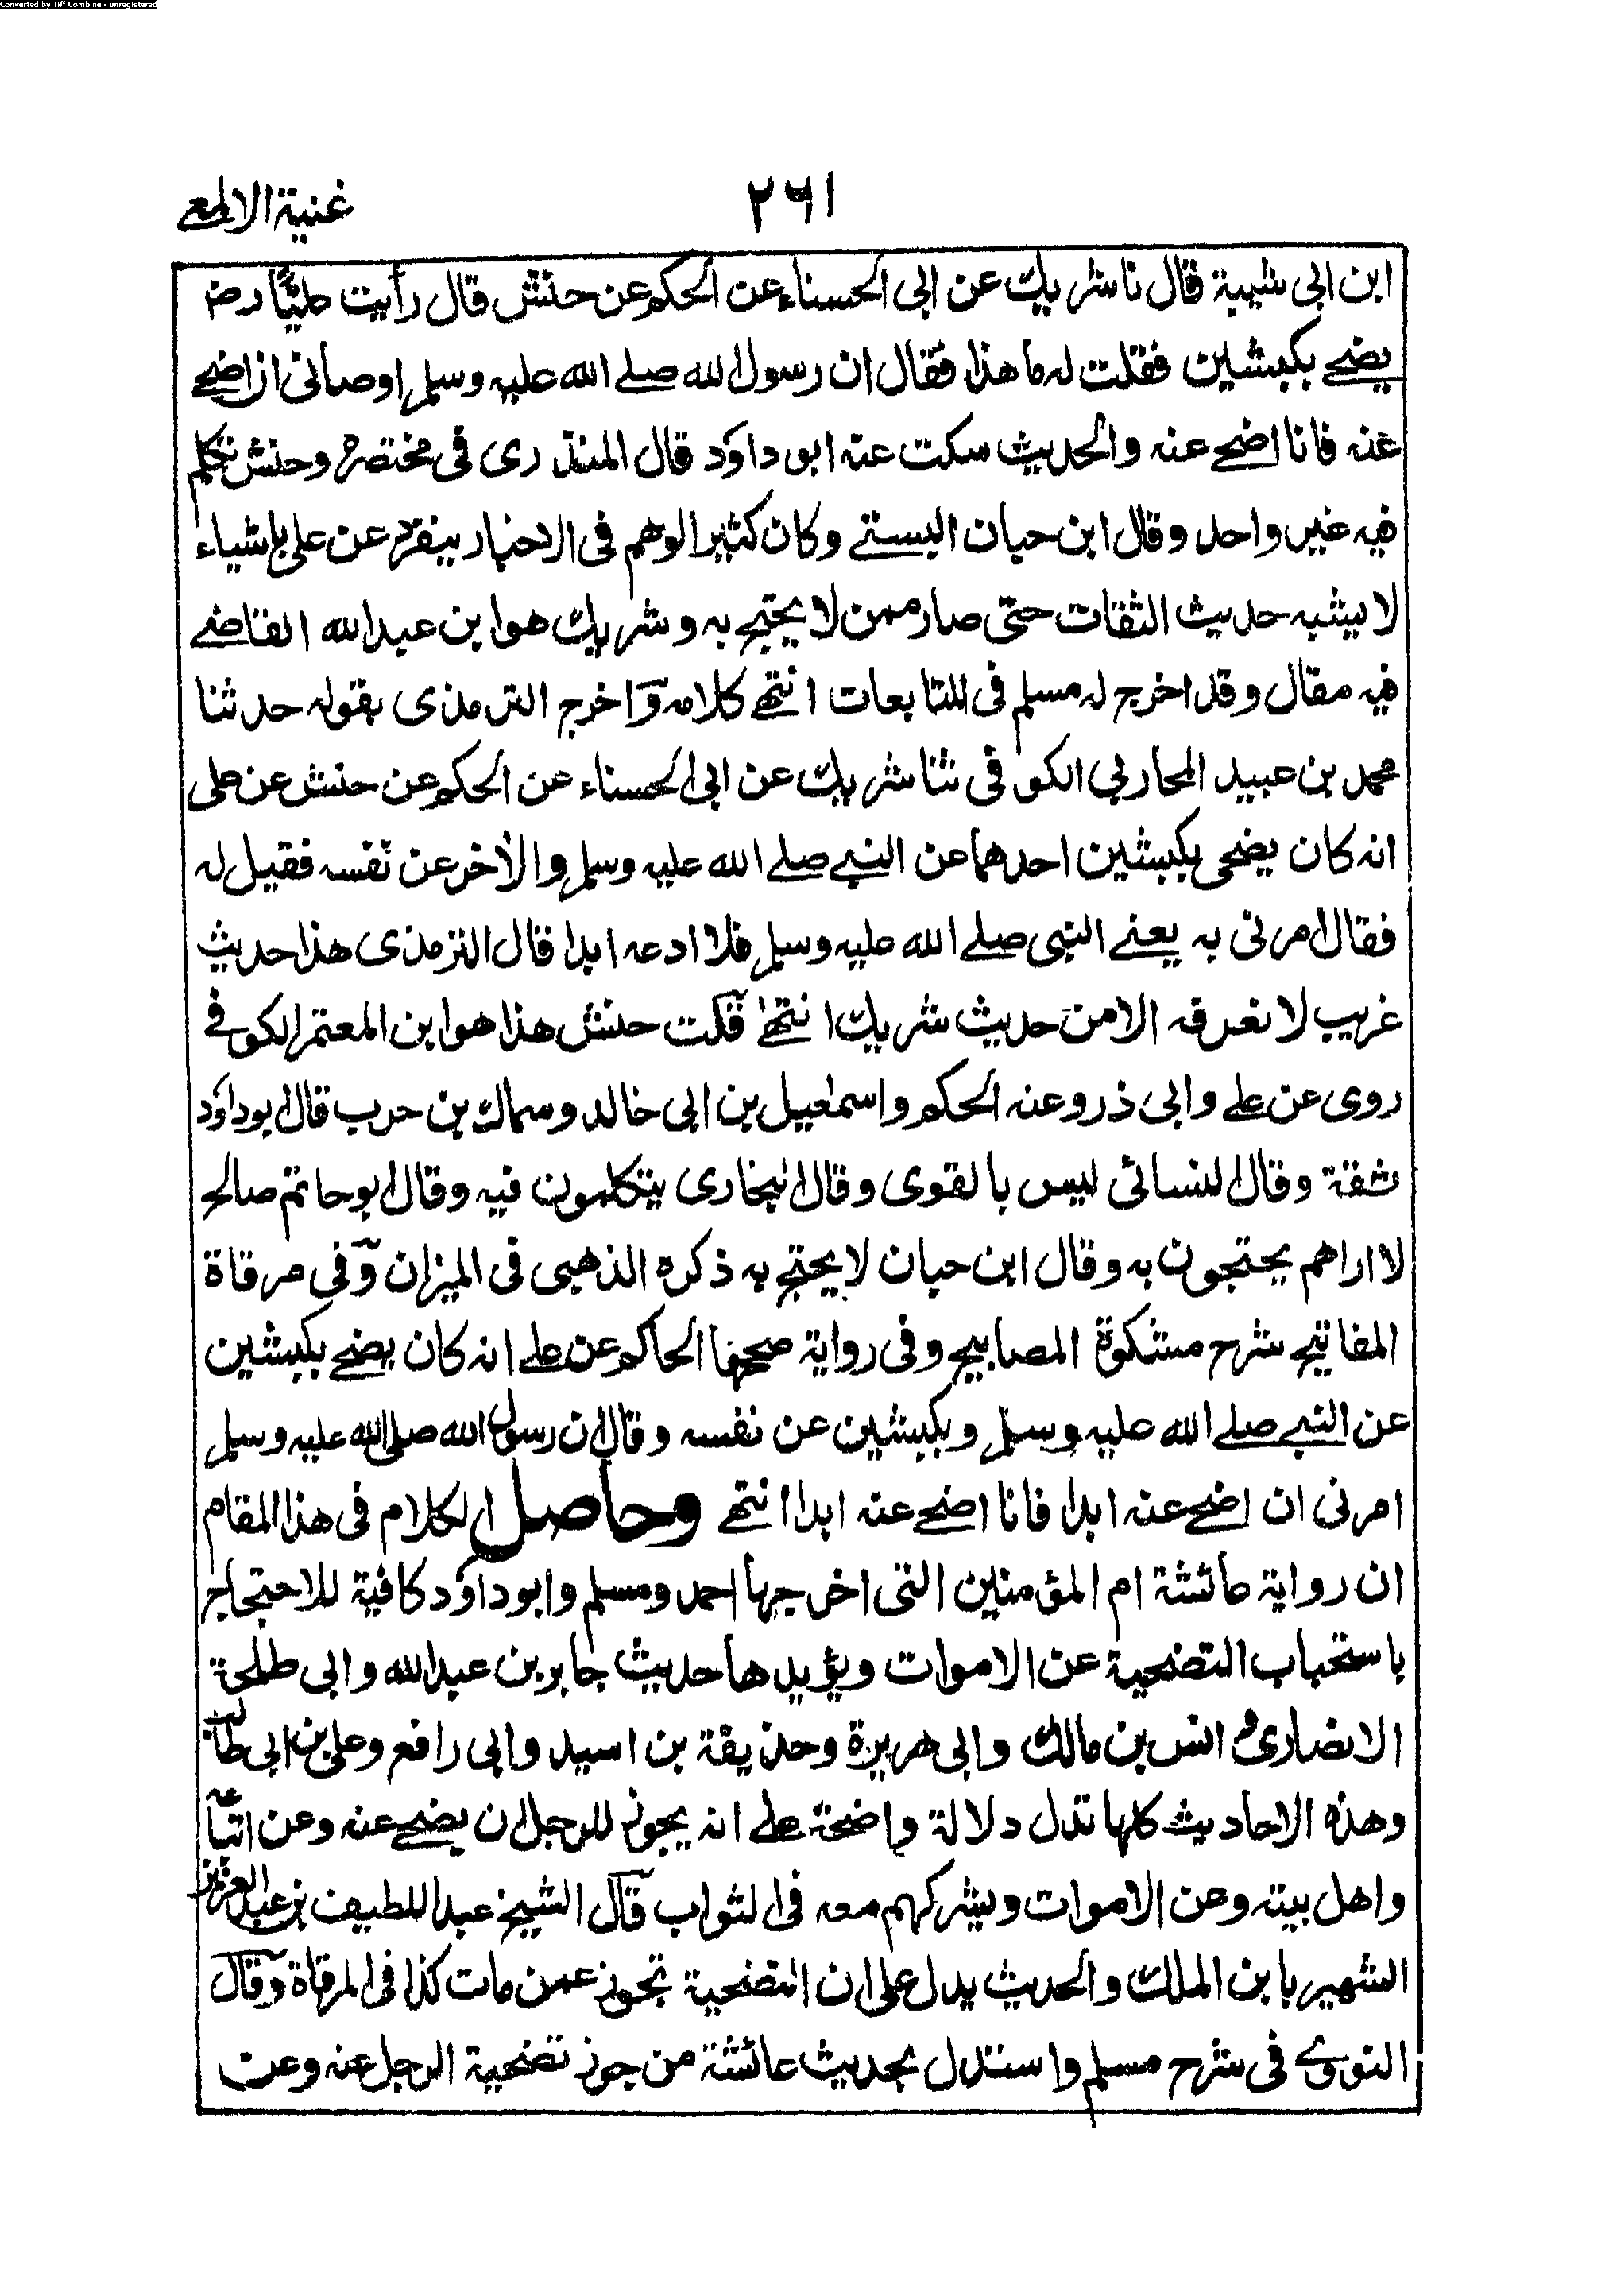 Converted by Tiff Combine - unregistered
غنية الالمعے
٢٦١
ابن ابى شيبة قال نا شريك عن ابى الحسناء عن الحكم عن حنش قال رأيت عليًّا رضـ
يضحے بكبشين فقلت له ما هذا فقال ان رسول الله صلے الله عليه وسلم اوصانى ان اضحے
عنه فانا اضحے عنه والحديث سكت عنه ابو داؤد قال المنذرى فى مختصره وحنش تكلم
فيه غير واحد وقال ابن حبان البستے وكان كثير الوهم فى الاخبار ينفرد عن على باشياء
لا يشبه حديث الثقات حتى صار ممن لا يحتج به وشريك هو ابن عبد الله القاضے
فيه مقال وقد اخرج له مسلم فى المتابعات انتهے كلامه واخرج الترمذى بقوله حدثنا
محمد بن عبيد المحاربي الكوفى ثنا شريك عن ابى الحسناء عن الحكم عن حنش عن على
انه كان يضحى بكبشين احدهما عن النبے صلے الله عليه وسلم والاخر عن نفسه فقيل له
فقال امرنى به يعنے النبى صلے الله عليه وسلم فلا ادعه ابدا قال الترمذى هذا حديث
غريب لا نعرفه الا من حديث شريك انتهے قلت حنش هذا هو ابن المعتمر الكوفے
روى عن علے وابى ذر وعنه الحكم واسمٰعيل بن ابى خالد وسماك بن حرب قال ابو داؤد
ثقة وقال النسائى ليس بالقوى وقال البخارى يتكلمون فيه وقال ابو حاتم صالح
لا اراهم يحتجون به وقال ابن حبان لا يحتج به ذكره الذهبى فى الميزان وفى مرقاة
المفاتيح شرح مشكوة المصابيح وفى رواية صححها الحاكم عن علے انه كان يضحے بكبشين
عن النبے صلے الله عليه وسلم وبكبشين عن نفسه وقال ان رسول الله صلى الله عليه وسلم
امرنى ان اضحے عنه ابدا فانا اضحے عنه ابدا انتهے وحاصل الكلام فى هذا المقام
ان رواية عائشة ام المؤمنين التى اخرجها احمد ومسلم وابو داؤد كافية للاحتجاج
باستحباب التضحية عن الاموات ويؤيدها حديث جابر بن عبد الله وابى طلحة
الانصارى و انس بن مالك وابى هريرة وحذيفة بن اسيد وابى رافع وعلى بن ابى طالب
وهذه الاحاديث كلها تدل دلالة واضحة علے انه يجوز للرجل ان يضحے عنه وعن اتباعه
واهل بيته وعن الاموات ويشركهم معه فى الثواب قال الشيخ عبد اللطيف بن عبد العزيز
الشهير بابن الملك والحديث يدل على ان التضحية تجوز عمن مات كذا فى المرقاة وقال
النووے فى شرح مسلم واستدل بحديث عائشة من جوز تضحية الرجل عنه وعن